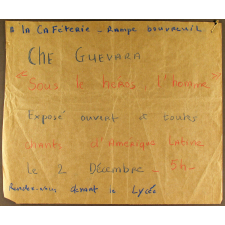 à la Caféterie - Rampe Bouvreuil
CHE GUEVARA
"Sous le héros l'homme"
Exposé ouvert à toutes
chants d'Amérique Latine
le 2 Décembre - 5h
Rendez-vous devant le Lycée